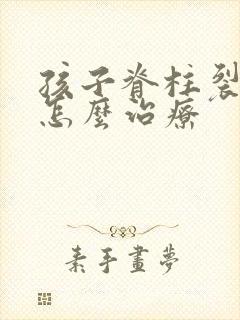 孩子脊柱裂
怎麼治療
素手畫夢